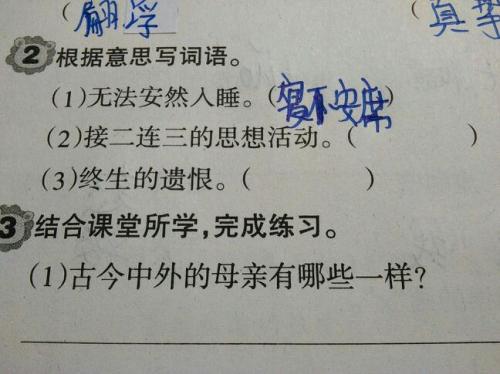 ( (真
2 根据意思写词语。
(1)无法安然入睡。(寝不安席)
(2)接二连三的思想活动。( )
(3)终生的遗恨。( )
3 结合课堂所学,完成练习。
(1)古今中外的母亲有哪些一样?